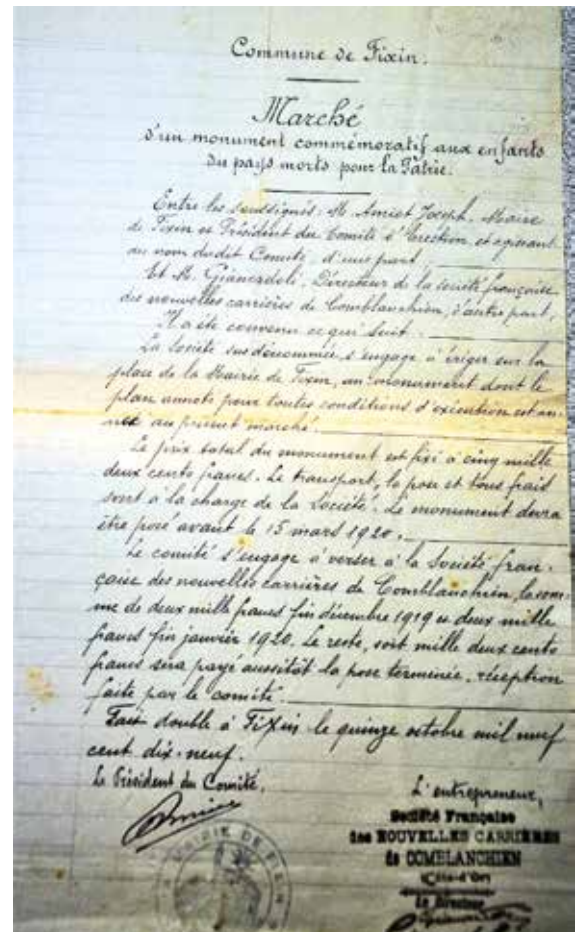 Commune de Fixin.
Marché
d'un monument commémoratif aux enfants
du pays morts pour la Patrie.
Entre les soussignés: M. Amiot Joseph, Maire
de Fixin et Président du Comité d'Erection et agissant
au nom dudit Comité, d'une part,
Et M. Directeur de la société française
des nouvelles carrières de Comblanchien, d'autre part,
Il a été convenu ce qui suit.
La Société susdénommée, s'engage à ériger sur la
place de la Mairie de Fixin, un monument dont le
plan annoté pour toutes conditions d'exécution est an-
nexé au présent marché.
Le prix total du monument est fixé à cinq mille
deux cents francs. Le transport, la pose et tous frais
sont à la charge de la Société. Le monument devra
être posé avant le 15 mars 1920.
Le comité s'engage à verser à la Société fran-
çaise des nouvelles carrières de Comblanchien, la som-
me de deux mille francs fin décembre 1919 et deux mille
francs fin janvier 1920. Le reste, soit mille deux cents
francs sera payé aussitôt la pose terminée, réception
faite par le comité.
Fait double à Fixin le quinze octobre mil neuf
cent dix-neuf.
Le Président du Comité,
L'entrepreneur,
Société Française
des NOUVELLES CARRIÈRES
de COMBLANCHIEN
(Côte-d'Or)
Le Directeur
MAIRIE DE FIXIN